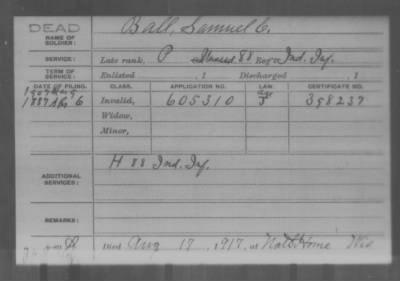 DEAD
NAME OF SOLDIER: Ball, Samuel C.
SERVICE: Late rank, P 88 Reg't Ind. Inf.
TERM OF SERVICE: Enlisted , 1 Discharged , 1
DATE OF FILING. CLASS. APPLICATION NO. LAW. CERTIFICATE NO.
1907
1887 6 Invalid, 605310 398237
Widow,
Minor,
ADDITIONAL SERVICES: H 88 Ind. Inf.
REMARKS:
Died Aug 17, 1917, at Nat'l Home Wis